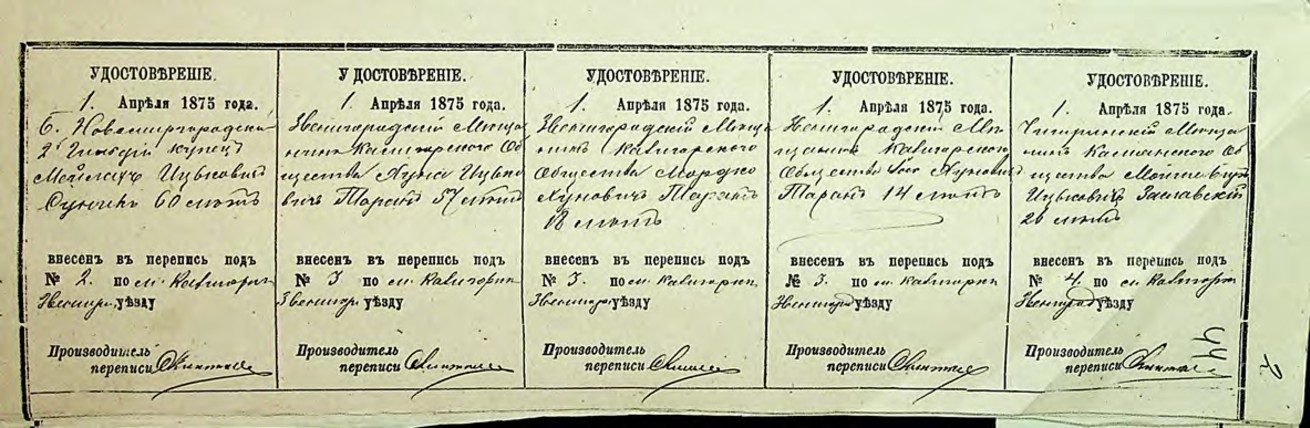 УДОСТОВѢРЕНІЕ.
1. Апрѣля 1875 года.
Б. Новомиргородскій
2 Гильдіи купецъ
Мейлахъ Ицьковичъ
60 лѣтъ
внесенъ въ перепись подъ
№ 2. по м. Кавигорк
Звениг. уѣзду
Производитель
переписи
УДОСТОВѢРЕНІЕ.
1. Апрѣля 1875 года.
Звенигородскій Мѣща
нинъ Калигорского Об
щества Хуна Ицько
вичъ Таранъ 57 лѣтъ
внесенъ въ перепись подъ
№ 3 по м. Калигорки
Звениг. уѣзду
Производитель
переписи
УДОСТОВѢРЕНІЕ.
1. Апрѣля 1875 года.
Звенигородскій Мѣща
нинъ Калигорского
Общества Мордко
Хуновичъ Таранъ
18 лѣтъ
внесенъ въ перепись подъ
№ 3. по м. Калигорки
Звениг. уѣзду
Производитель
переписи
УДОСТОВѢРЕНІЕ.
1. Апрѣля 1875 года.
Звенигородскій Мѣ
щанинъ Калигорского
Общества Хуновичъ
Таранъ 14 лѣтъ
внесенъ въ перепись подъ
№ 3. по м. Калигорки
Звенигород уѣзду
Производитель
переписи
УДОСТОВѢРЕНІЕ.
1. Апрѣля 1875 года.
Чигиринскій Мѣща
нинъ Каменского Об
щества
Ицьковичъ Заславскій
26 лѣтъ
внесенъ въ перепись подъ
№ 4. по м. Калигорки
Звенигород уѣзду
Производитель
переписи
44